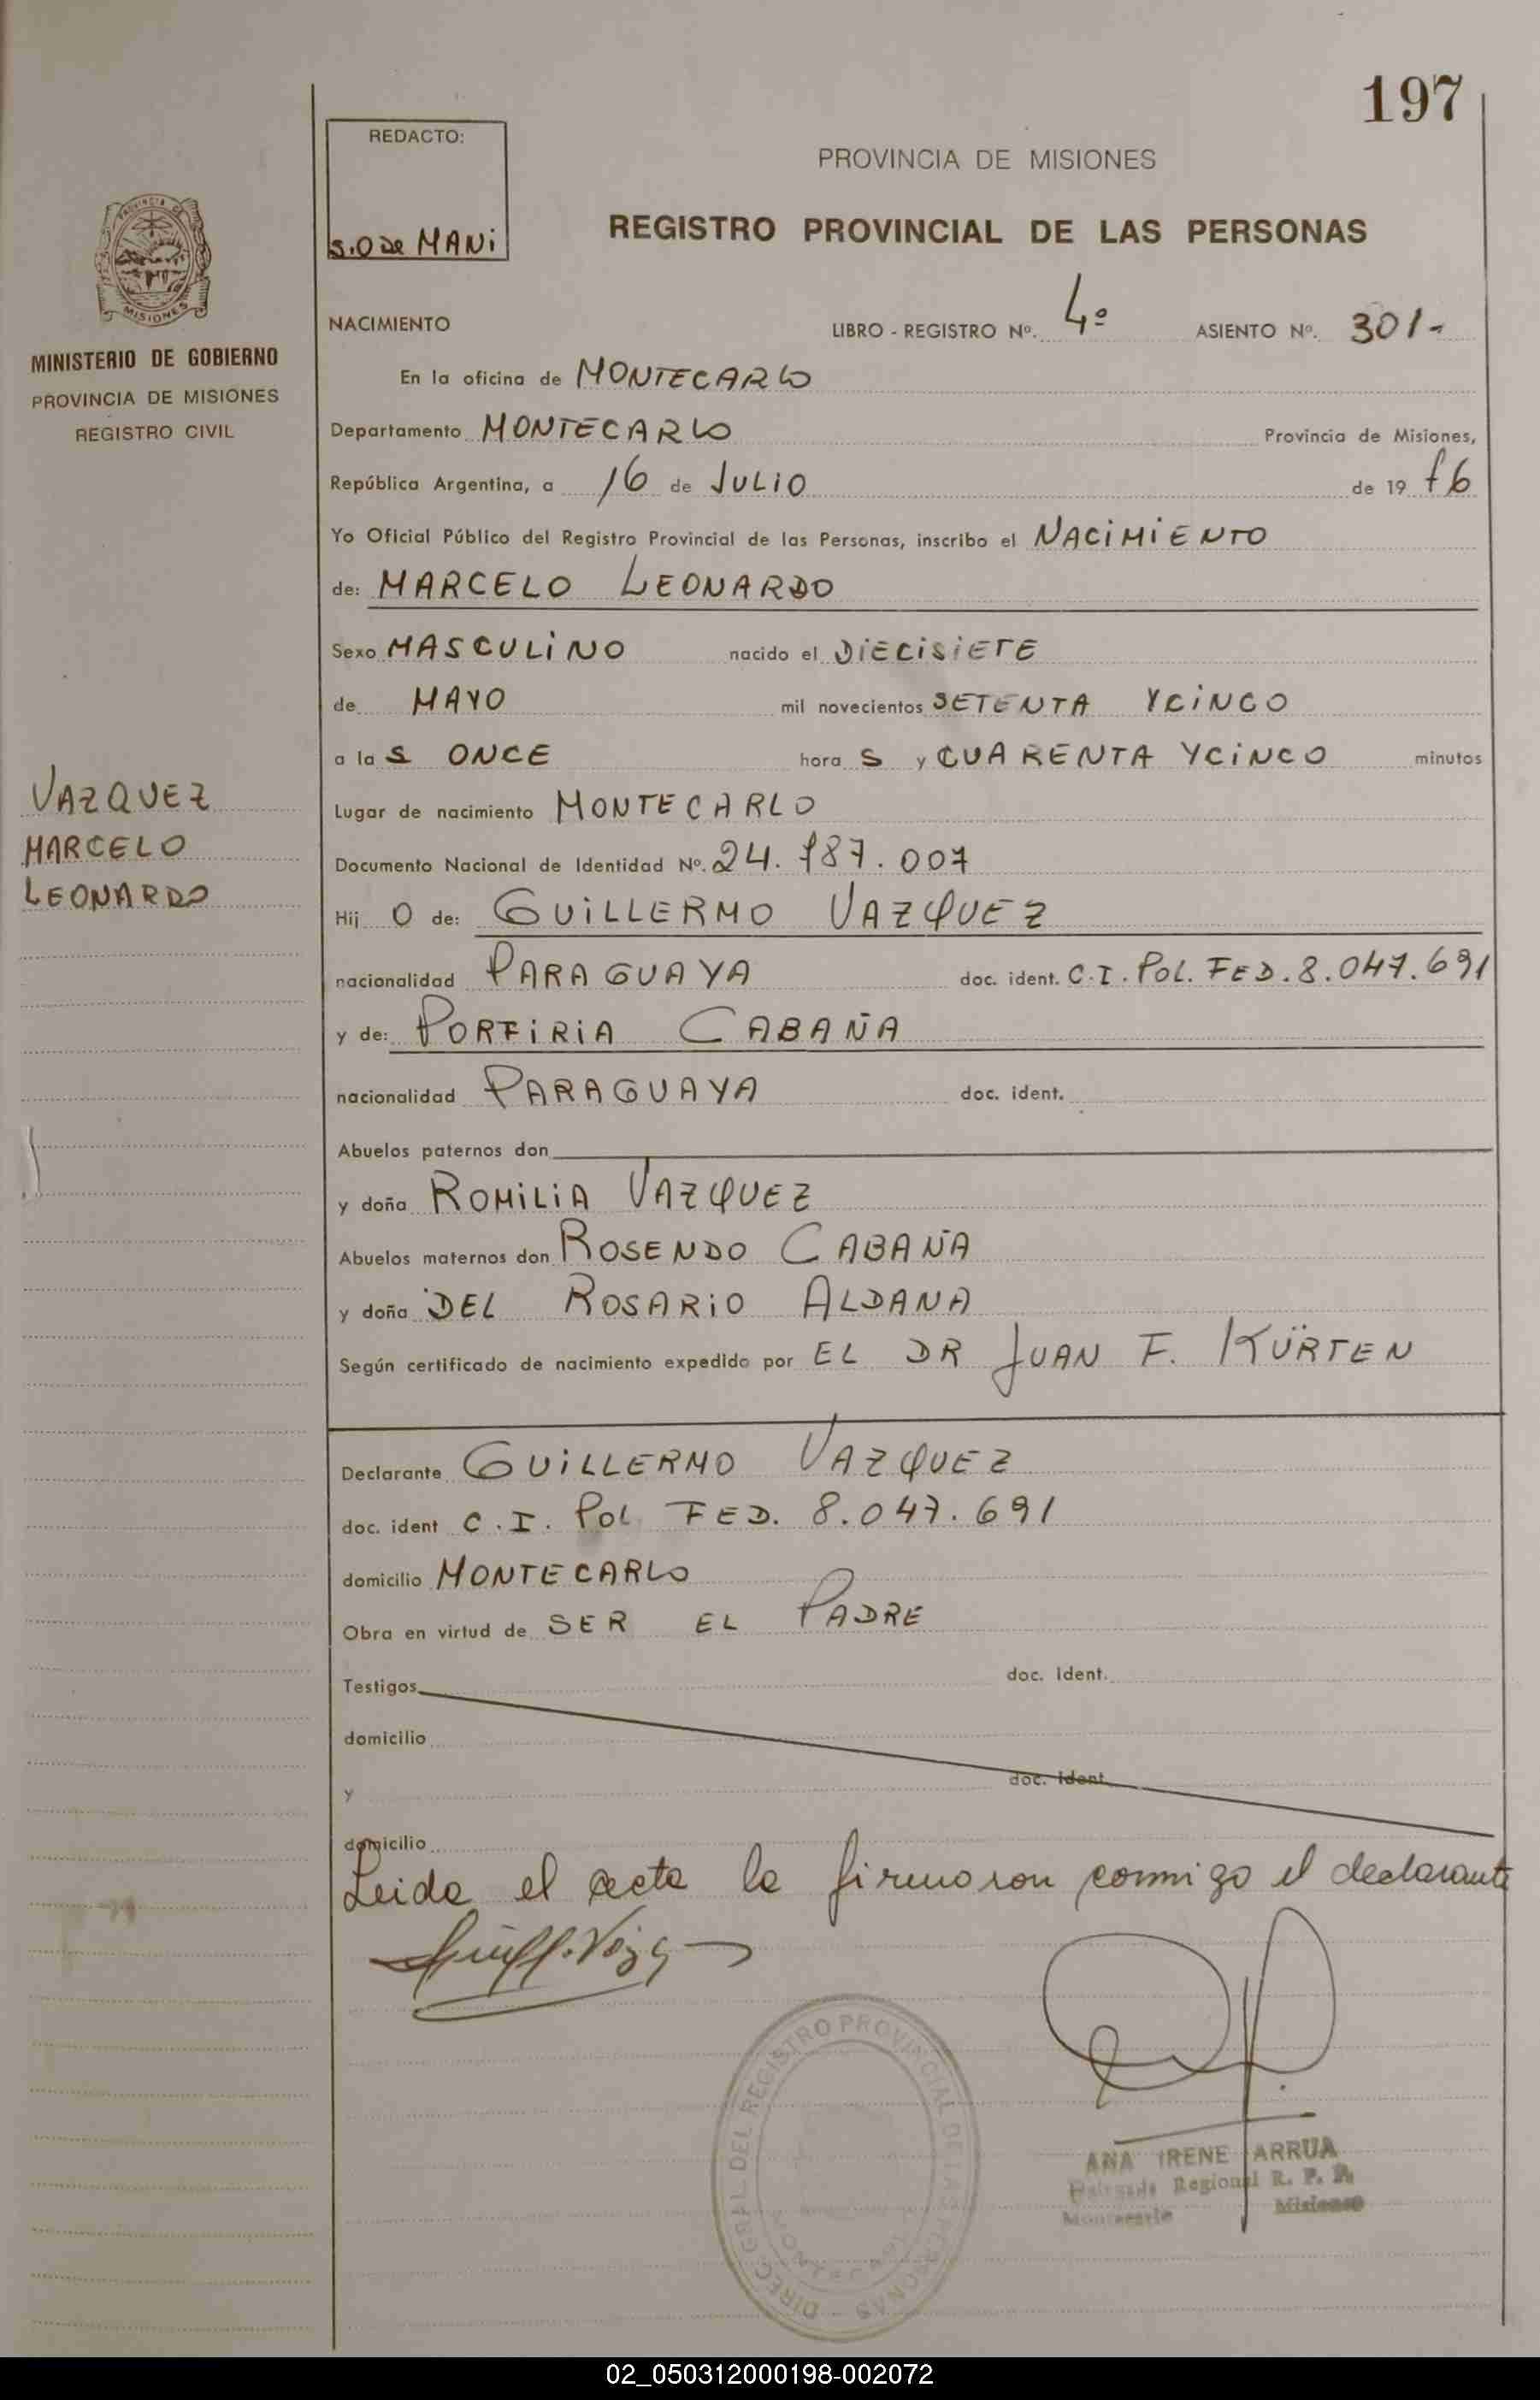 197
REDACTO:
S.O de MANI
PROVINCIA DE MISIONES
REGISTRO PROVINCIAL DE LAS PERSONAS
PROVINCIA DE
MISIONES
MINISTERIO DE GOBIERNO
PROVINCIA DE MISIONES
REGISTRO CIVIL
NACIMIENTO LIBRO - REGISTRO Nº. 4º ASIENTO Nº. 301-
En la oficina de MONTECARLO
Departamento MONTECARLO Provincia de Misiones,
República Argentina, a 16 de JULIO de 19 76
Yo Oficial Público del Registro Provincial de las Personas, inscribo el NACIMIENTO
de: MARCELO LEONARDO
Sexo MASCULINO nacido el DIECISIETE
de MAYO mil novecientos SETENTA Y CINCO
a las ONCE horas y CUARENTA Y CINCO minutos
VAZQUEZ
MARCELO
LEONARDO
Lugar de nacimiento MONTECARLO
Documento Nacional de Identidad Nº. 24.787.007
Hijo de: GUILLERMO VAZQUEZ
nacionalidad PARAGUAYA doc. ident. C.I. POL. FED. 8.047.691
y de: PORFIRIA CABAÑA
nacionalidad PARAGUAYA doc. ident.
Abuelos paternos don
y doña ROMILIA VAZQUEZ
Abuelos maternos don ROSENDO CABAÑA
y doña DEL ROSARIO ALDANA
Según certificado de nacimiento expedido por EL DR JUAN F. KÜRTEN
Declarante GUILLERMO VAZQUEZ
doc. ident C.I. POL FED. 8.047.691
domicilio MONTECARLO
Obra en virtud de SER EL PADRE
Testigos doc. ident.
domicilio
y doc. ident.
domicilio
Leida el acta la firmaron conmigo el declarante
DIREC. GRAL. DEL REGISTRO PROVINCIAL DE LAS PERSONAS
MONTECARLO
ANA IRENE ARRUA
Delegada Regional R. P. P.
Montecarlo Misiones
02_050312000198-002072